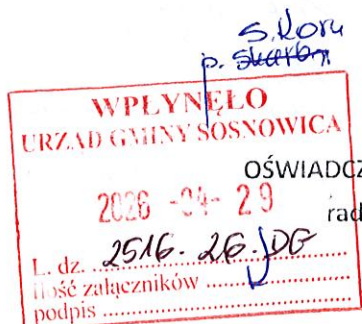 S. Koru
p. skarbn
WPŁYNĘŁO
URZĄD GMINY SOSNOWICA
OŚWIADCZ
2026 -04- 29
rad
L. dz. 2516.26.DG
ilość załączników
podpis